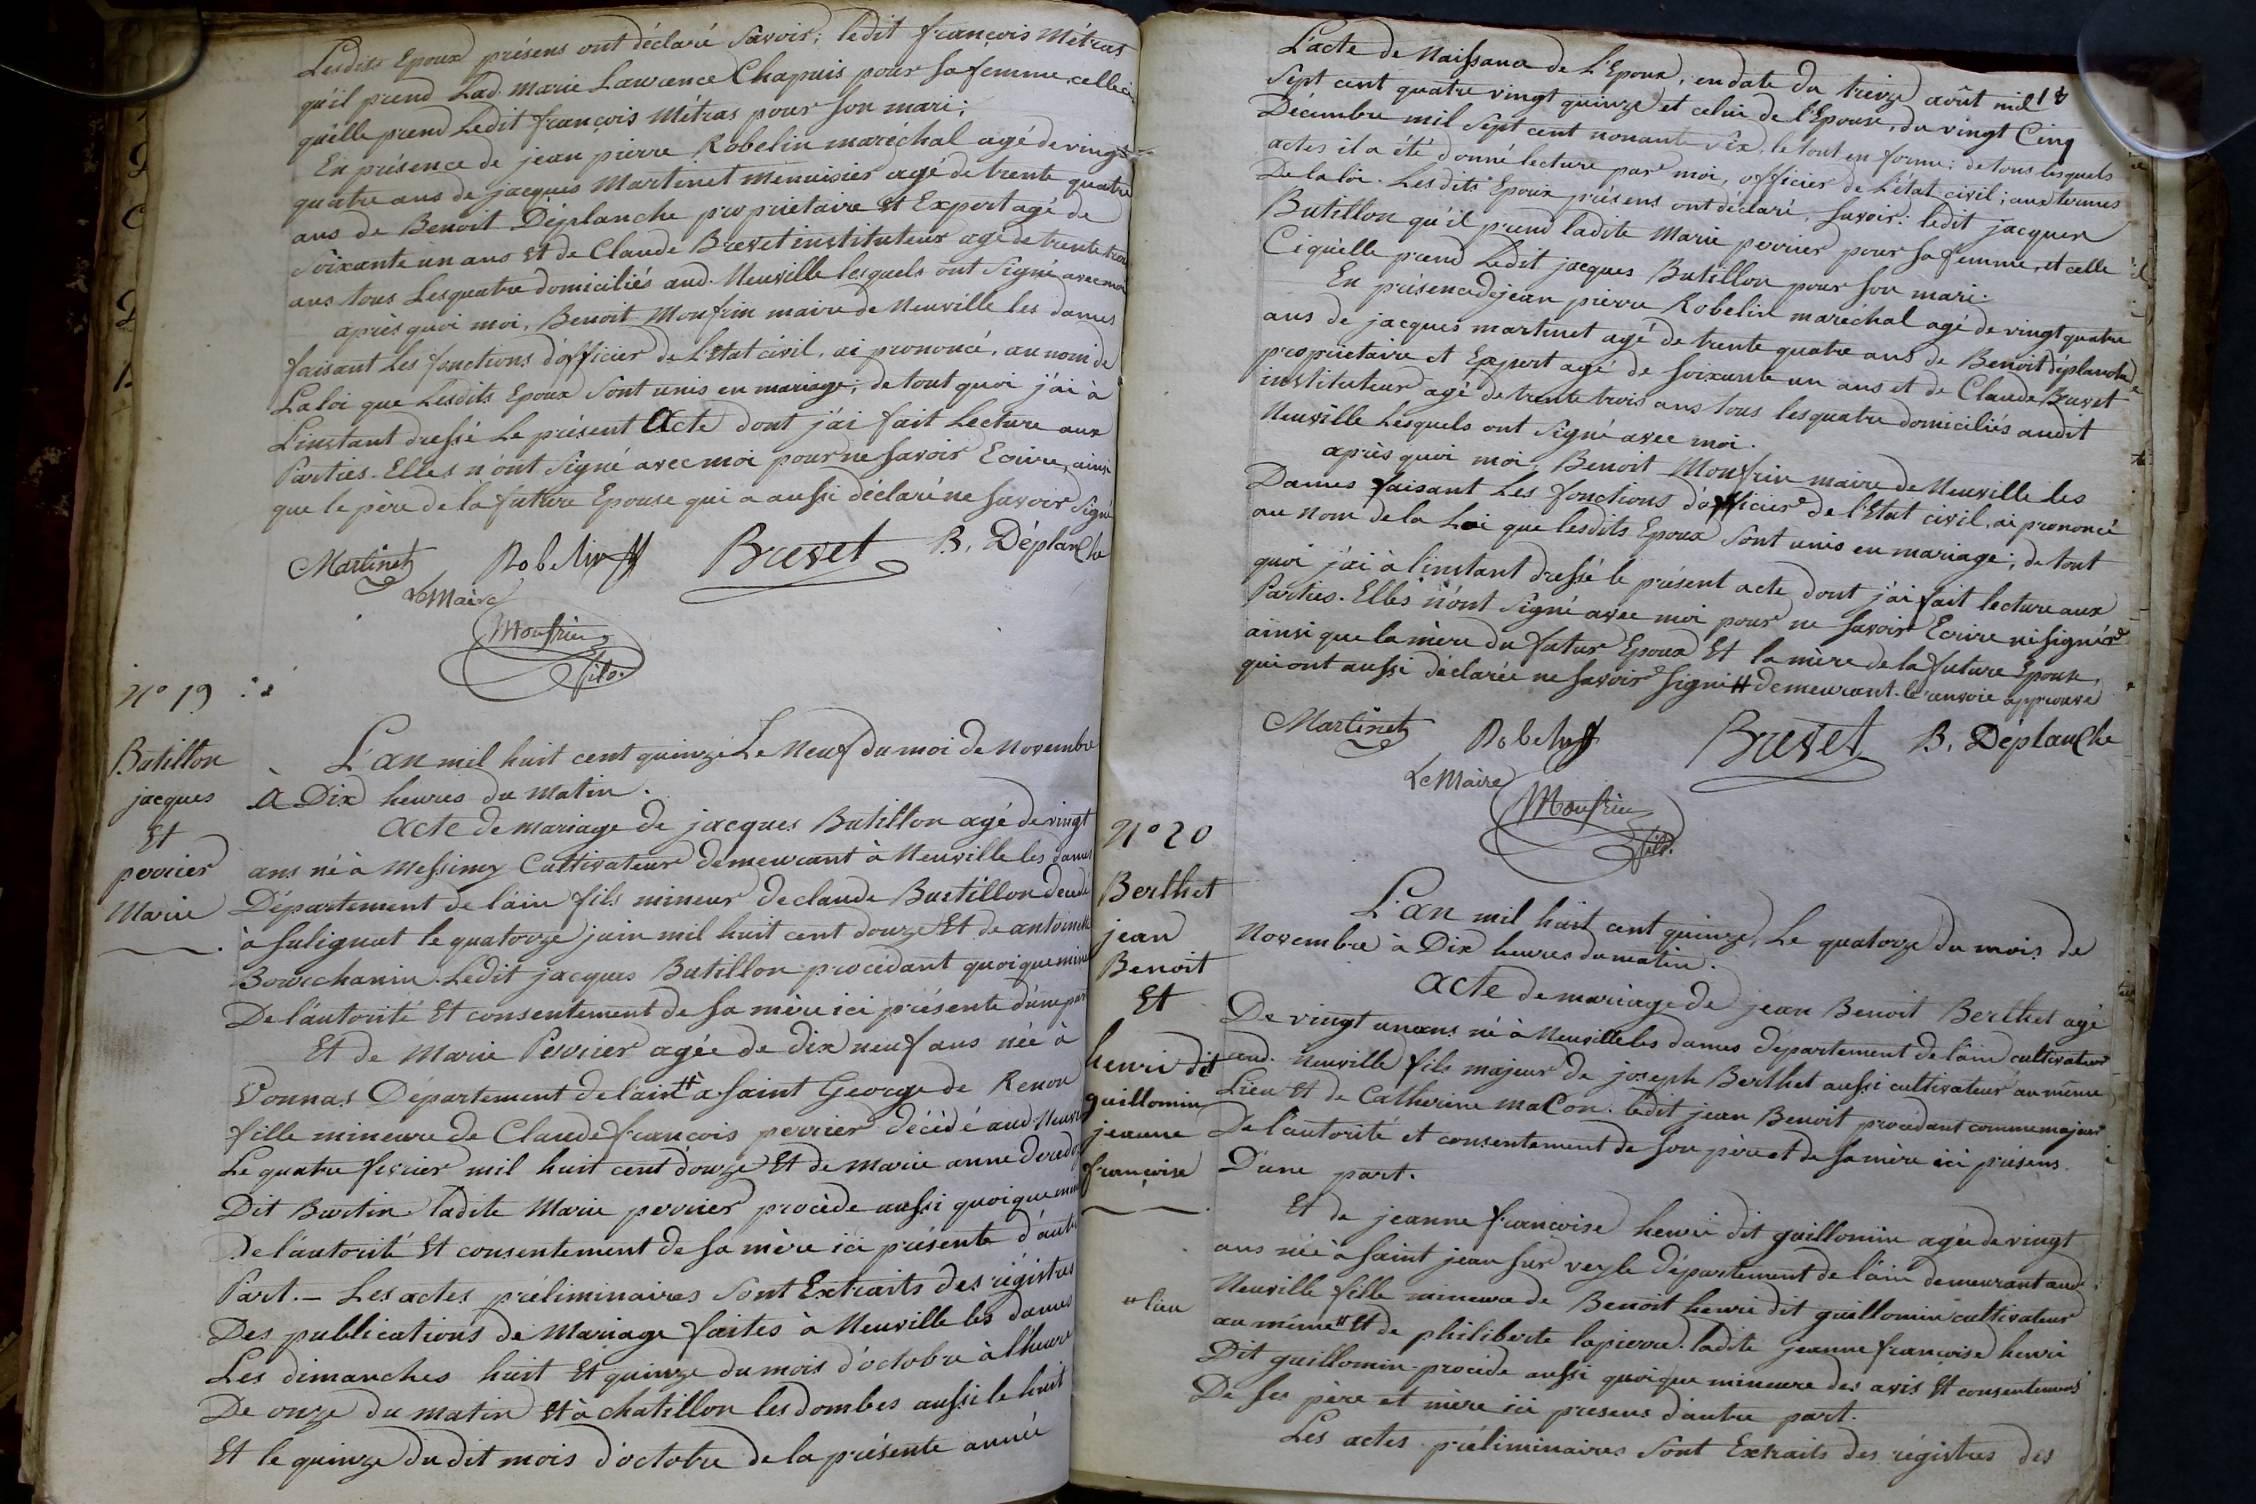 Lesdits Epoux présens ont déclaré Savoir; ledit françois Métras
qu'il prend Lad. marie Laurence Chapuis pour Sa femme, celleci
qu'elle prend Ledit françois Métras pour Son mari;
En présence de jean pierre Robelin marechal agé de vingt
quatre ans de jacques Martinet Menuisier agé de trente quatre
ans de Benoit Déplanche proprietaire Et Expert agé de
Soixante un ans Et de Claude Brevet instituteur agé de trente trois
ans tous Lesquatre domiciliés aud. Neuville lesquels ont Signé avec moi
après quoi moi, Benoit Monfrin maire de Neuville les dames
faisant Les fonctions d'officier de L'Etat civil, ai prononcé, au nom de
La loi que Lesdits Epoux Sont unis en mariage; de tout quoi j'ai à
L'instant dressé Le présent Acte dont j'ai fait Lecture aux
Parties. Elles n'ont Signé avec moi pour ne Savoir Ecrire, ainsi
que le père de la future Epouse qui a aussi déclaré ne Savoir Signé
Martinet Robelin Brevet B. Déplanche
Le Maire
Monfrin
fils.
N° 19
Batillon
jacques
Et
perrier
Marie
L'an mil huit cent quinze Le Neuf du moi de Novembre
A Dix heures du Matin.
Acte de mariage de jacques Batillon agé de vingt
ans né à Messimy Cultivateur demeurant à Neuville les dames
Département de l'ain fils mineur de claude Batillon décédé
à Sulignat le quatorze juin mil huit cent douze Et de antoinette
Bourchanin. Ledit jacques Batillon procédant quoique mineur
De l'autorité Et consentement de Sa mère ici présente d'une part
Et de Marie Perrier agée de dix neuf ans née à
Vonnas Département de l'ain # à Saint George de Renon
fille mineure de Claude françois perrier décédé aud. Neuville
Le quatre fevrier mil huit cent douze Et de marie anne
Dit Burtin ladite Marie perrier procède aussi quoique
De l'autorité Et consentement de Sa mère ici présente d'autre
Part. — Les actes préliminaires Sont Extraits des régistres
Des publications de Mariage faites à Neuville les dames
Les dimanches huit Et quinze du mois d'octobre à l'heure
De onze du matin Et à chatillon les dombes aussi le huit
Et le quinze du dit mois d'octobre de la présente année
18
L'acte de Naissance de L'Epoux, en date du treize août mil
Sept cent quatre vingt quinze et celui de l'Epouse, du vingt Cinq
Décembre mil Sept cent nonante Six, le tout en forme: de tous lesquels
actes il a été donné lecture par moi, officier de l'état civil; aux termes
De la loi. Lesdits Epoux présens ont déclaré, Savoir: ledit jacques
Batillon qu'il prend ladite Marie perrier pour Sa femme, et celle
Ci qu'elle prend Ledit jacques Batillon pour Son mari.
En présence de jean pierre Robelin maréchal agé de vingt quatre
ans de jacques martinet agé de trente quatre ans de Benoit déplanche
proprietaire et Expert agé de Soixante un ans et de Claude Brevet
instituteur agé de trente trois ans tous lesquatre domiciliés audit
Neuville Lesquels ont Signé avec moi.
après quoi moi, Benoit Monfrin maire de Neuville les
Dames faisant Les fonctions d'officier de l'Etat civil, ai prononcé
au Nom de la Loi que lesdits Epoux Sont unis en mariage; de tout
quoi j'ai à l'instant dressé le présent acte dont j'ai fait lecture aux
Parties. Elles n'ont Signé avec moi pour ne Savoir Ecrire ni signer
ainsi que la mère du futur Epoux Et la mère de la future Epouse,
qui ont aussi déclarée ne Savoir Signé # demeurant. le renvoie approuvé
Martinet Robelin Brevet B. Déplanche
Le Maire
Monfrin
fils.
N° 20
Berthet
jean
Benoit
Et
henri dit
guillomin
jeanne
françoise
L'an mil huit cent quinze, Le quatorze du mois de
Novembre à Dix heures du matin.
Acte de mariage de jean Benoit Berthet agé
De vingt un ans né à Neuville les dames département de l'ain cultivateur
aud. Neuville fils majeur de joseph Berthet aussi cultivateur au même
Lieu Et de Catherine maCon. ledit jean Benoit procédant comme majeur
De l'autorité et consentement de Son père et de Sa mère ici présens.
D'une part.
Et de jeanne françoise henri dit guillomin agée de vingt
ans née à Saint jean Sur veyle département de l'ain demeurant aud.
Neuville fille mineure de Benoit henri dit guillomin cultivateur
" lieu
au même " Et de philiberte lapierre. ladite jeanne françoise henri
Dit guillomin procède aussi quoique mineure des avis Et consentemens
De Ses père et mère ici présens d'autre part.
Les actes préliminaires Sont Extraits des régistres des